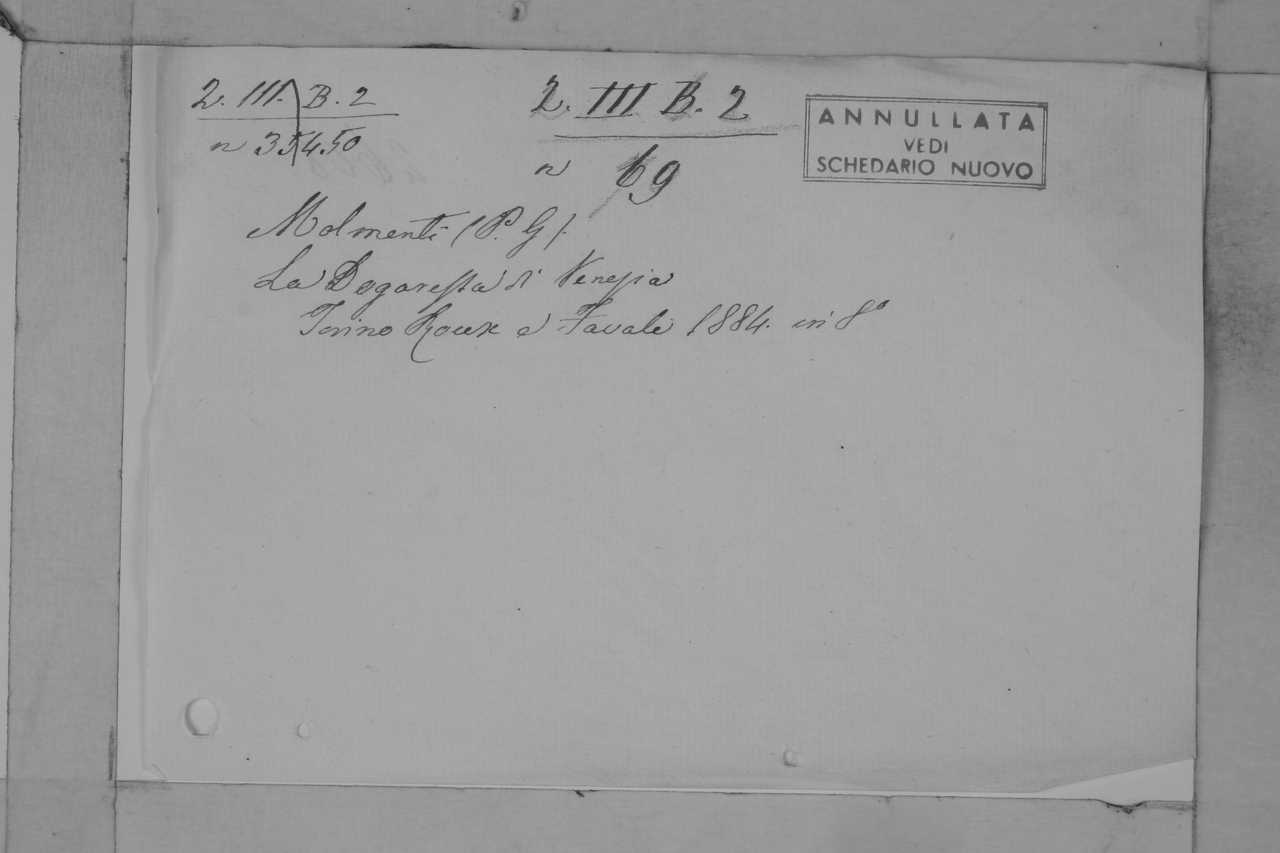 2. III. B. 2
n 35450
2. III B. 2
n 69
ANNULLATA
VEDI
SCHEDARIO NUOVO
Molmenti (P. G).
La Dogaressa di Venezia
Torino Roux e Favale 1884. in 8°